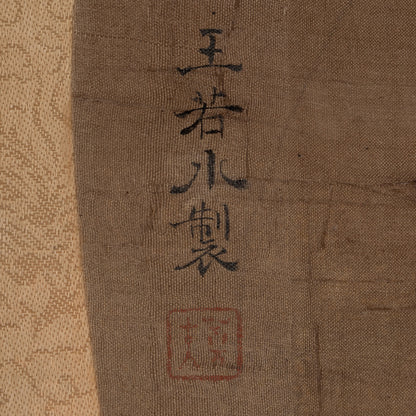 王若水製